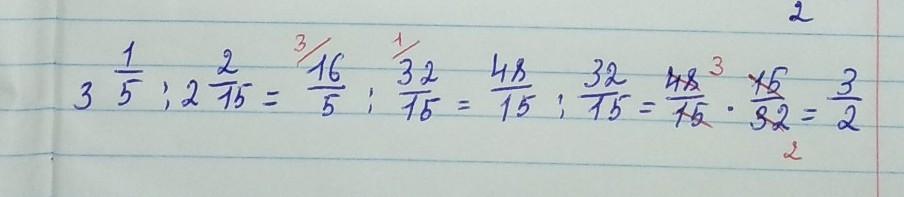 2
3 1/5 : 2 2/15 = 3/ 16/5 : 1/ 32/15 = 48/15 : 32/15 = 48/15 3 · 15/32 = 3/2
2